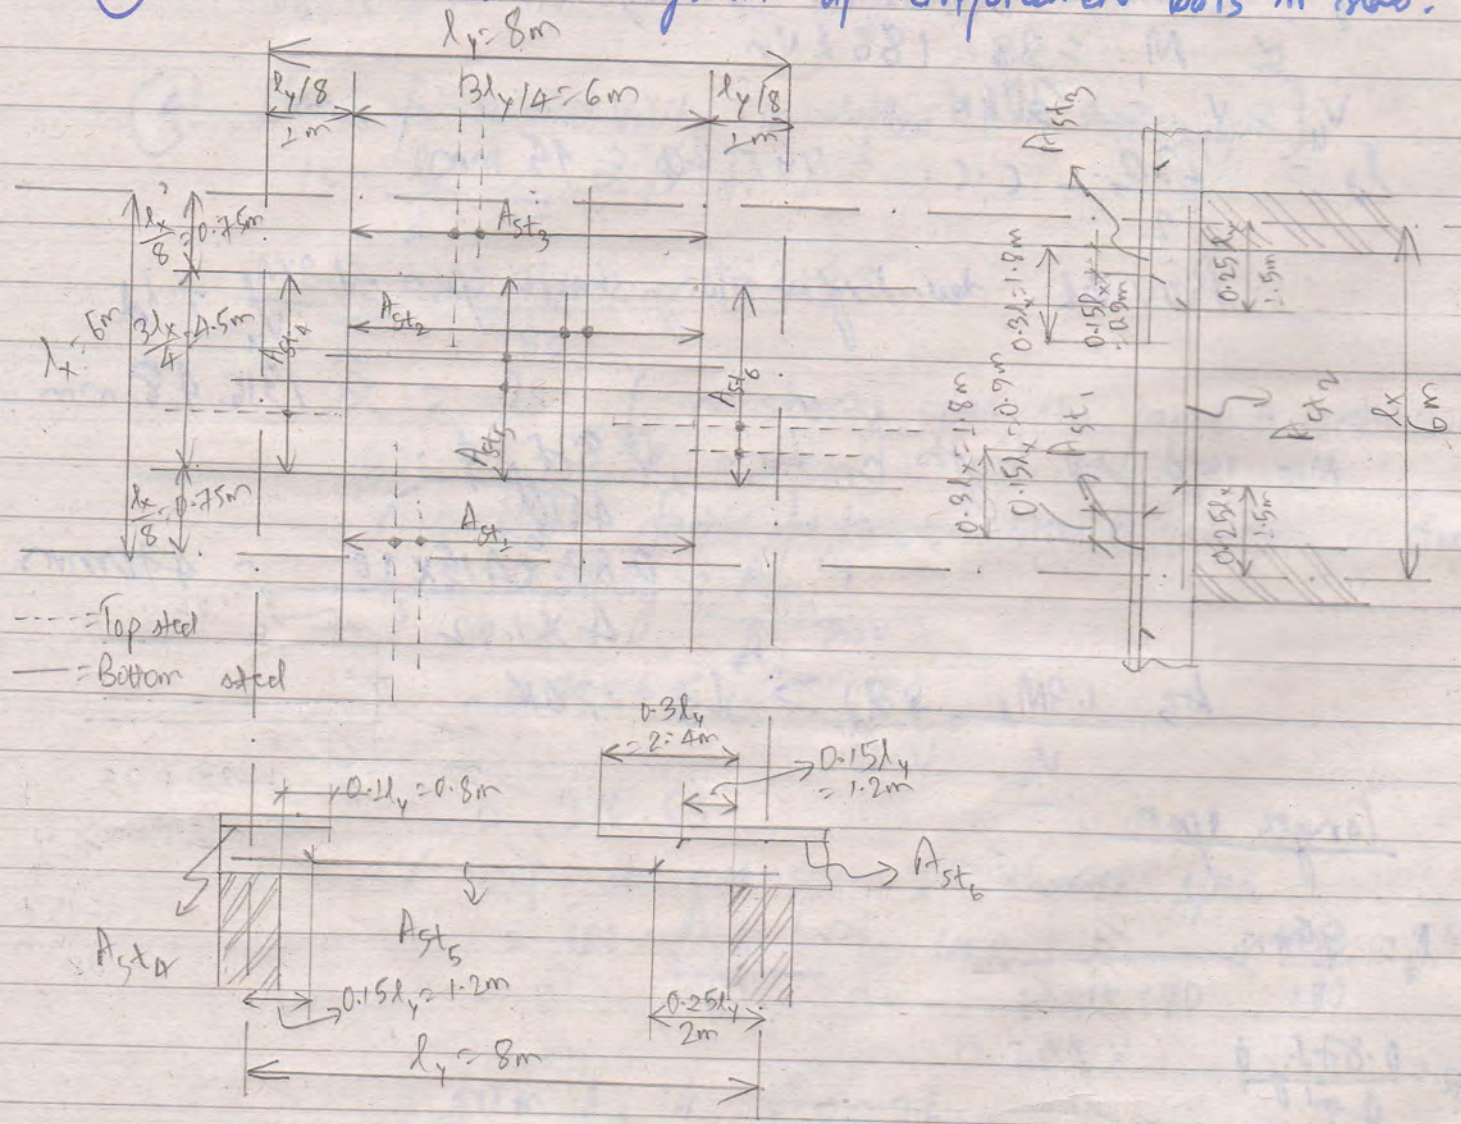 of bars in slab.
ly = 8m
ly/8
3ly/4 = 6m
ly/8
1m
1m
lx/8 = 0.75m
Ast3
lx = 6m
3lx/4 = 4.5m
Ast4
Ast2
Ast6
Ast5
lx/8 = 0.75m
Ast1
---- = Top steel
— = Bottom steel
Ast3
0.3lx = 1.8m
0.15lx
= 0.9m
0.25lx
1.5m
0.3lx = 1.8m
0.15lx = 0.9m
Ast1
Ast2
lx
6m
0.25lx
1.5m
0.3ly
= 2.4m
0.15ly
= 1.2m
0.1ly = 0.8m
Ast6
Ast4
Ast5
0.15ly = 1.2m
0.25ly
2m
ly = 8m